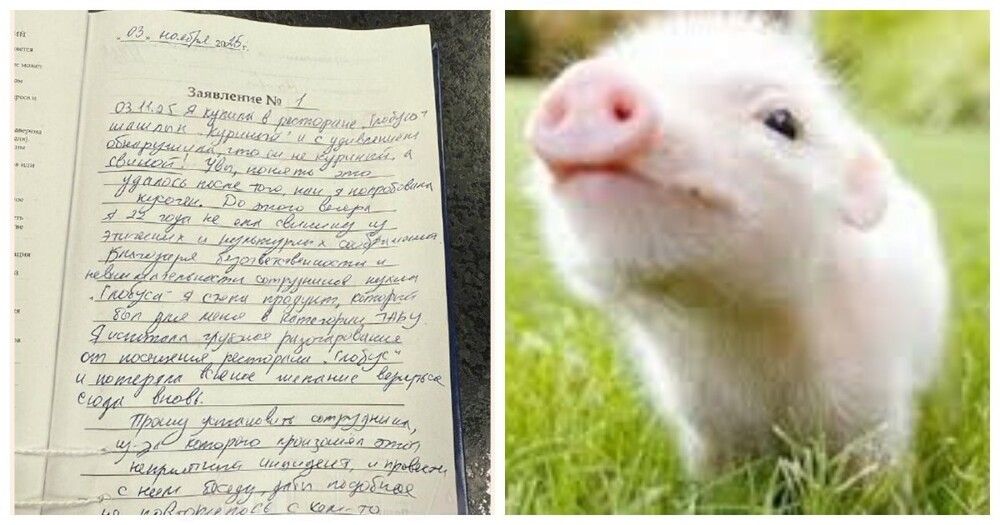 "03" ноября 2025 г.
Заявление № 1
03.11.25 Я купила в ресторане "Глобус"
шашлык "Куриный" и с удивлением
обнаружила, что он не куриный, а
свиной! Увы, понять это
удалось после того, как я попробовала
кусочек. До этого вечера
я 22 года не ела свинину из
этических и культурных соображений.
Благодаря безответственности и
невнимательности сотрудников кухни
"Глобуса" я съела продукт, который
был для меня в категории ТАБУ.
Я испытала глубокое разочарование
от посещения ресторана "Глобус"
и потеряла всякое желание вернуться
сюда вновь.
Прошу установить сотрудника,
из-за которого произошёл этот
неприятный инцидент, и провести
с ним беседу, дабы подобное
не повторилось с кем-то